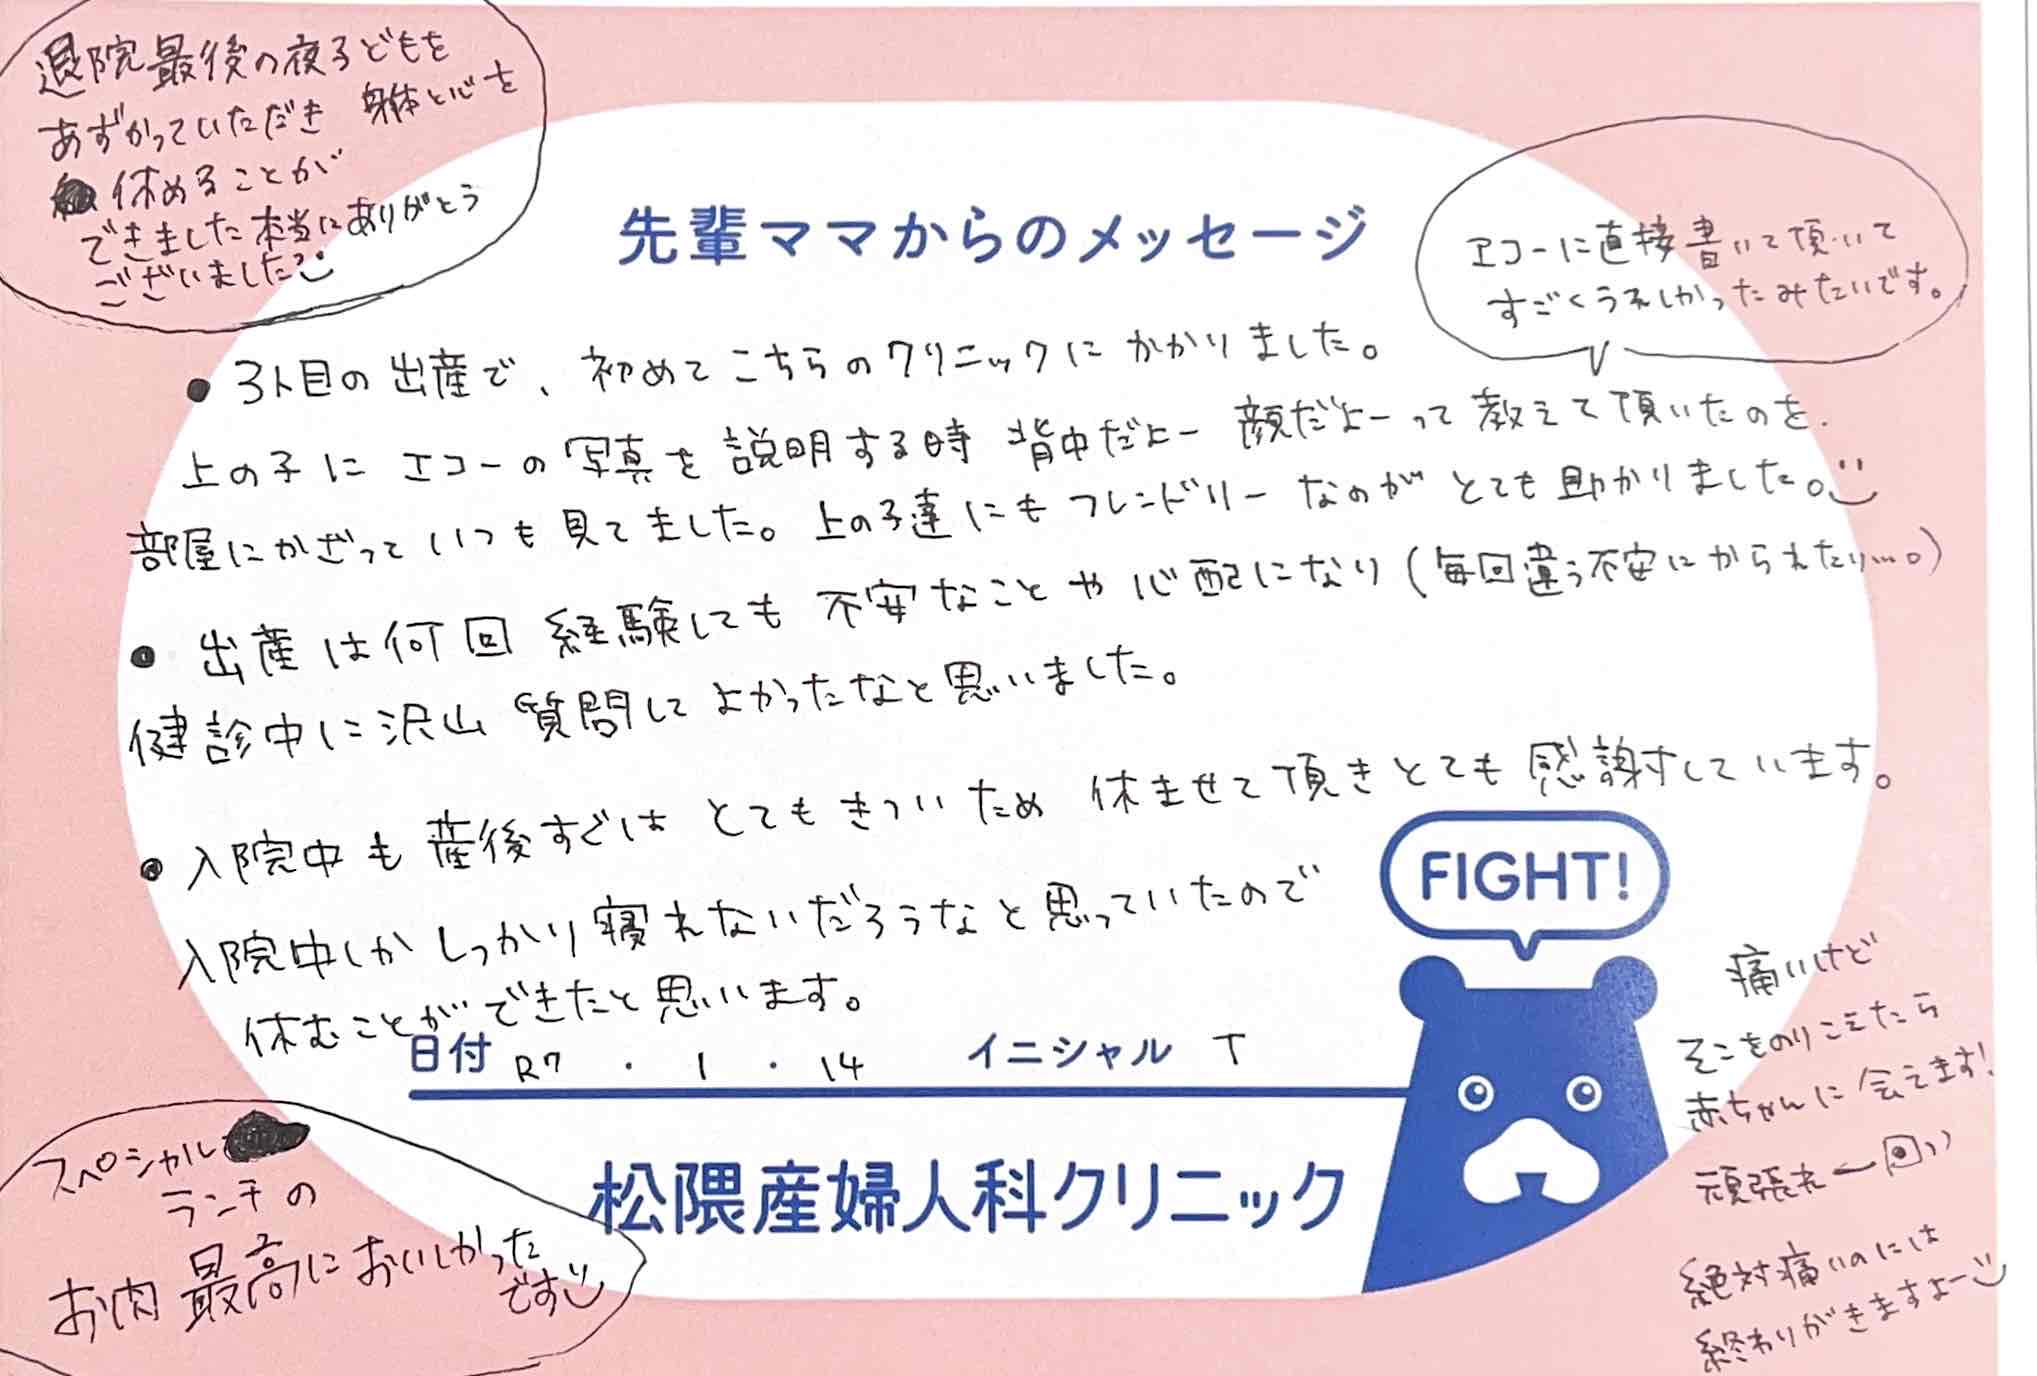 退院最後の夜子どもを
あずかっていただき 身体と心を
休めることが
できました本当にありがとう
ございました
先輩ママからのメッセージ
エコーに直接書いて頂いて
すごくうれしかったみたいです。
● 3人目の出産で、初めてこちらのクリニックにかかりました。
上の子にエコーの写真を説明する時 背中だよー 顔だよーって教えて頂いたのを
部屋にかざっていつも見てました。上の子達にもフレンドリーなのがとても助かりました。
● 出産は何回経験しても不安なことや心配になり(毎回違う不安にかられたり…。)
健診中に沢山質問してよかったなと思いました。
● 入院中も産後すぐはとてもきついため休ませて頂きとても感謝しています。
入院中しかしっかり寝れないだろうなと思っていたので
休むことができたと思います。
FIGHT!
日付 R7 ・ 1 ・ 14 イニシャル T
松隈産婦人科クリニック
痛いけど
そこをのりこえたら
赤ちゃんに会えます!
頑張れー
絶対痛いのには
終わりがきますよー
スペシャル
ランチの
お肉 最高においしかった
です